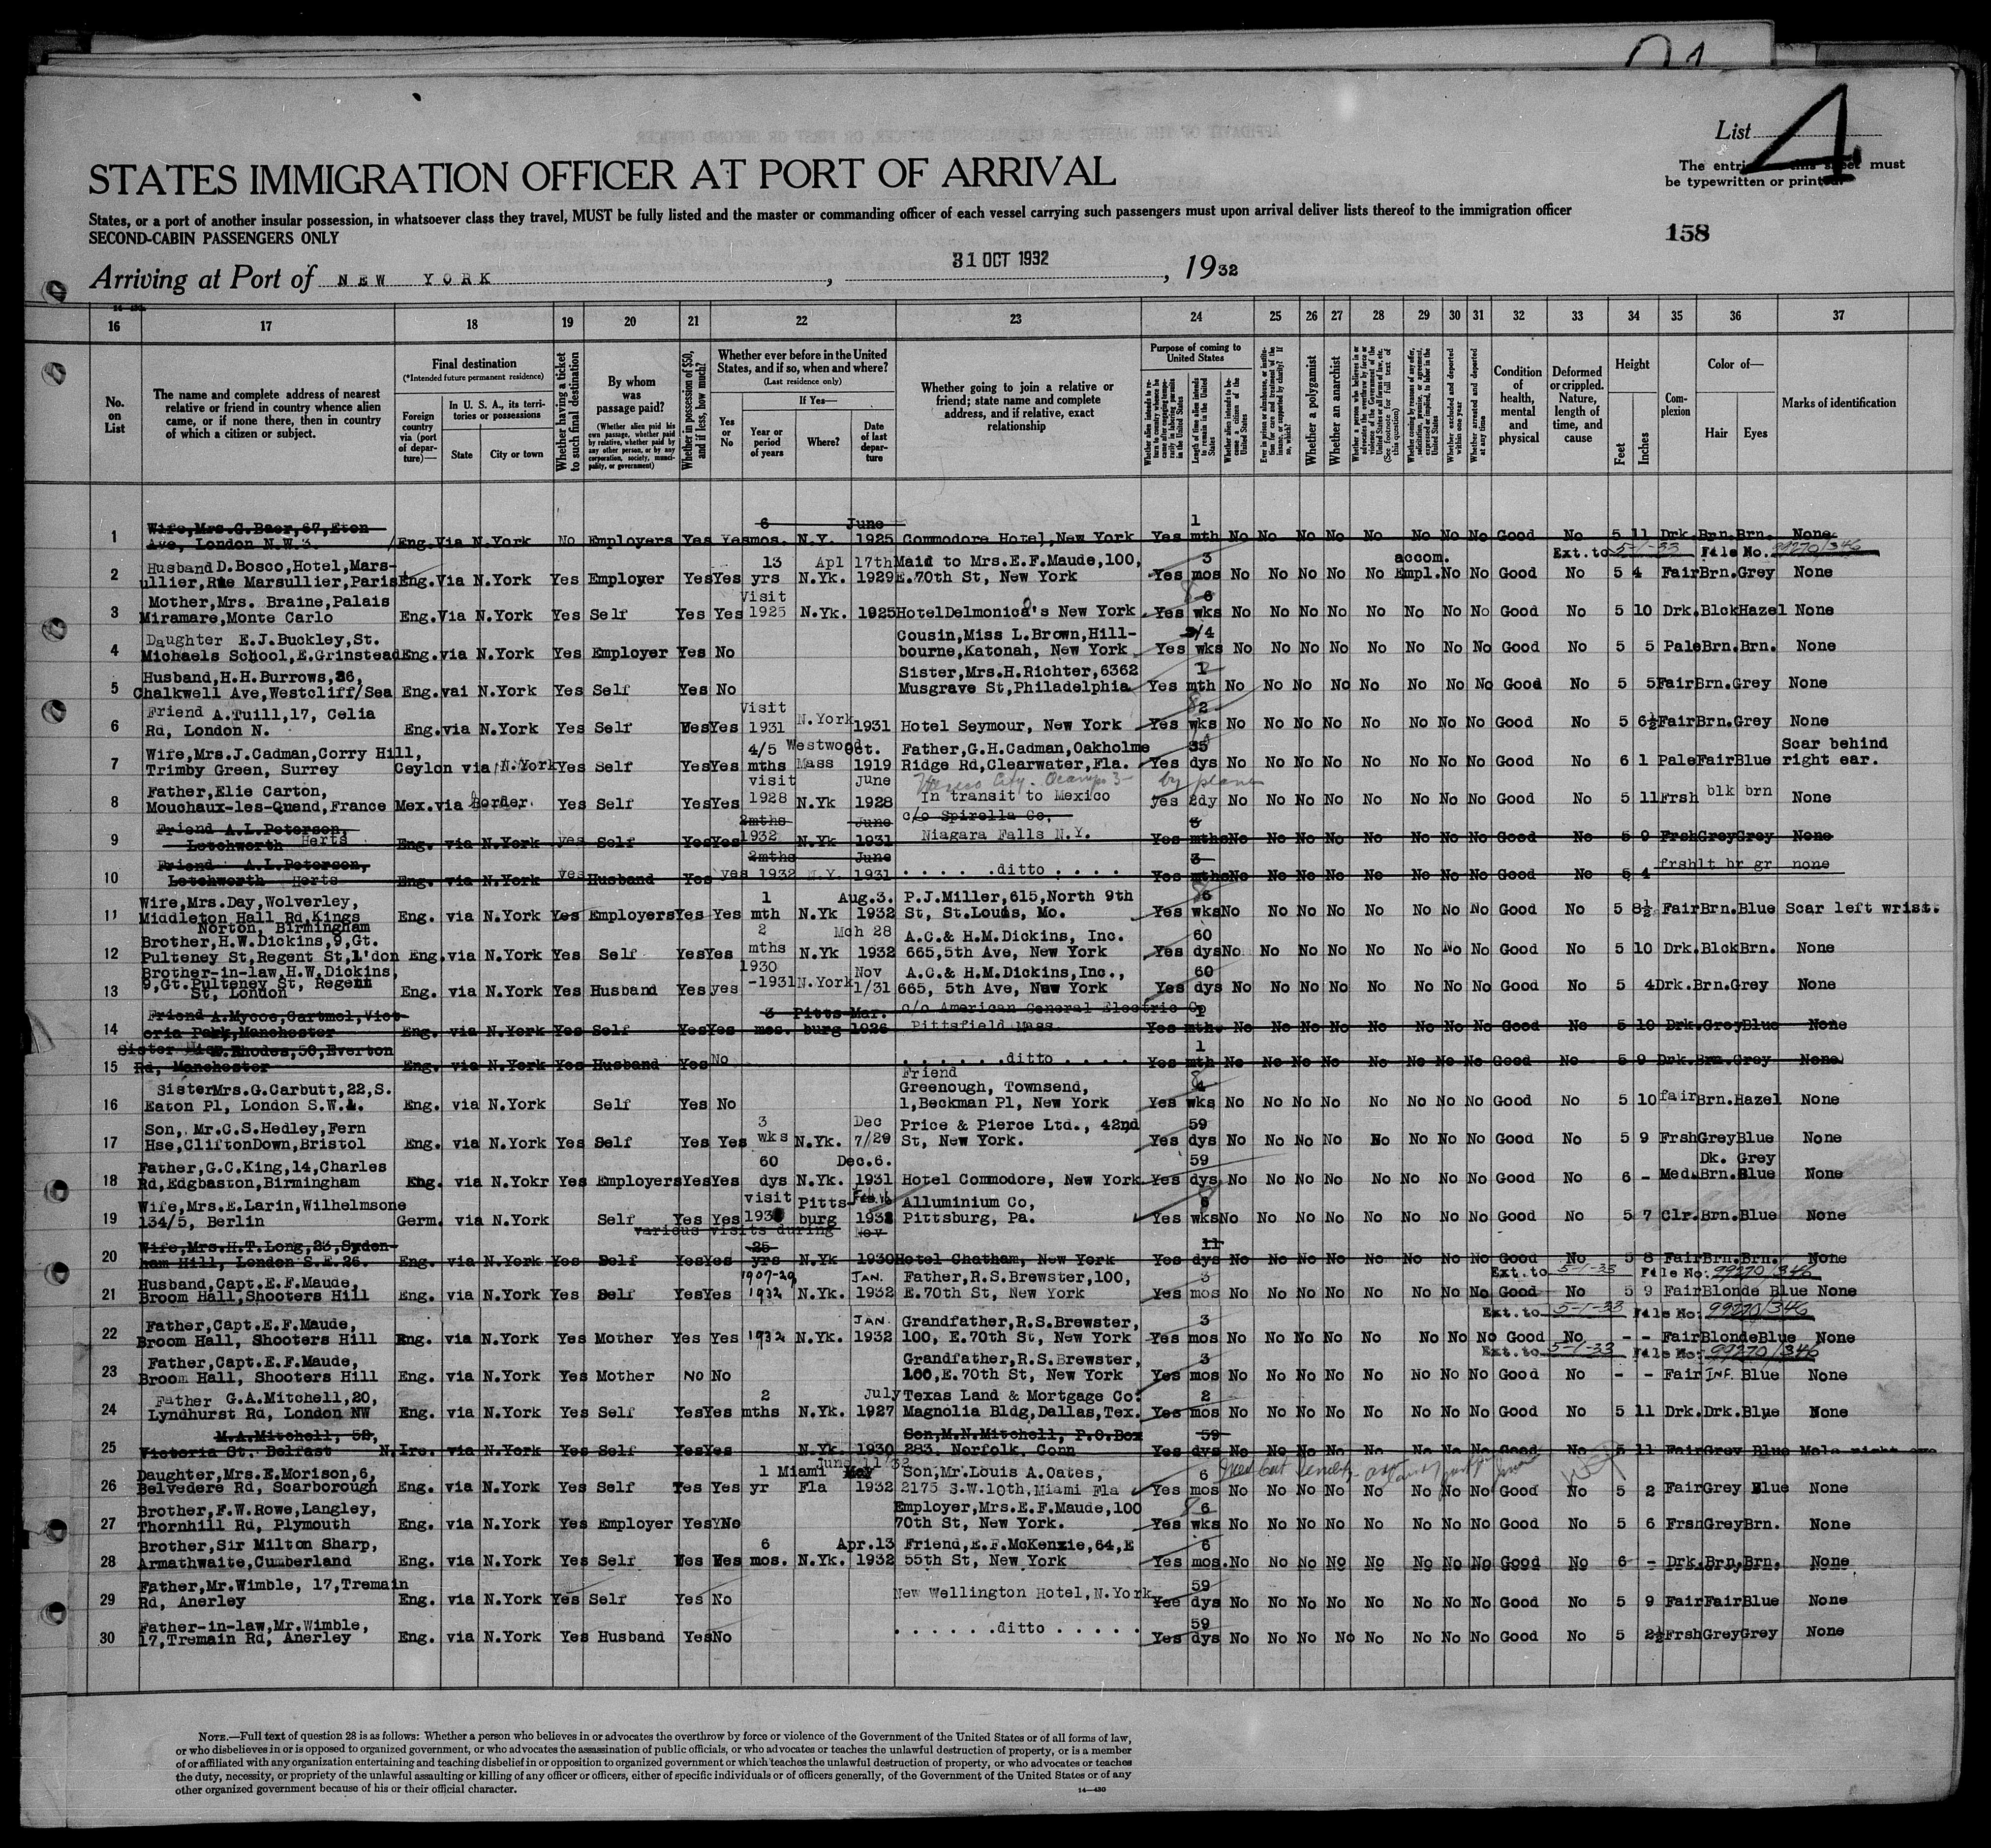 List 4
STATES IMMIGRATION OFFICER AT PORT OF ARRIVAL
The entries must
be typewritten or printed.
States, or a port of another insular possession, in whatsoever class they travel, MUST be fully listed and the master or commanding officer of each vessel carrying such passengers must upon arrival deliver lists thereof to the immigration officer
SECOND-CABIN PASSENGERS ONLY
158
Arriving at Port of NEW YORK, 31 OCT 1932, 1932
16 17 18 19 20 21 22 23 24 25 26 27 28 29 30 31 32 33 34 35 36 37
No. on List
The name and complete address of nearest relative or friend in country whence alien came, or if none there, then in country of which a citizen or subject.
Final destination
(*Intended future permanent residence)
Foreign country via (port of departure)—
In U. S. A., its territories or possessions
State
City or town
Whether having a ticket to such final destination
By whom was passage paid?
(Whether alien paid his own passage, whether paid by relative, whether paid by any other person, or by any corporation, society, municipality, or government)
Whether in possession of $50, and if less, how much?
Whether ever before in the United States, and if so, when and where?
(Last residence only)
If Yes—
Yes or No
Year or period of years
Where?
Date of last departure
Whether going to join a relative or friend; state name and complete address, and if relative, exact relationship
Purpose of coming to United States
Length of time alien intends to remain in the United States
Whether alien intends to become a citizen of the United States
Whether a polygamist
Whether an anarchist
Whether excluded and deported within one year
Whether arrested and deported at any time
Condition of health, mental and physical
Deformed or crippled. Nature, length of time, and cause
Height
Feet
Inches
Complexion
Color of—
Hair
Eyes
Marks of identification
1 Wife,Mrs.G.Baer,67,Eton 6 June 1
Ave, London N.W.3. Eng.Via N.York No Employers Yes Yes mos. N.Y. 1925 Commodore Hotel,New York Yes mth No No No No No No No No No Good No 5 11 Drk.Brn.Brn. None
Ext.to 5-1-33 File No. 99270/346
2 Husband D.Bosco,Hotel,Mars- 13 Apl 17th Maid to Mrs.E.F.Maude,100, 3 accom.
ullier,Rue Marsullier,Paris Eng.Via N.York Yes Employer Yes Yes yrs N.Yk. 1929 E.70th St, New York Yes mos No No No No No Empl. No No Good No 5 4 Fair Brn.Grey None
3 Mother,Mrs. Braine,Palais Visit 6
Miramare,Monte Carlo Eng.Via N.York Yes Self Yes Yes 1925 N.Yk. 1925 HotelDelmonica's New York Yes wks No No No No No No No No Good No 5 10 Drk.BlckHazel None
4 Daughter E.J.Buckley,St. Cousin,Miss L.Brown,Hill- 3/4
Michaels School,E.Grinstead Eng.via N.York Yes Employer Yes No bourne,Katonah, New York Yes wks No No No No No No No No Good No 5 5 PaleBrn.Brn. None
5 Husband,H.H.Burrows,36, Sister,Mrs.H.Richter,6362 1
Chalkwell Ave,Westcliff/Sea Eng.vai N.York Yes Self Yes No Musgrave St,Philadelphia Yes mth No No No No No No No No Good No 5 5 FairBrn.Grey None
6 Friend A.Tuill,17, Celia Visit 2
Rd, London N. Eng.via N.York Yes Self Yes Yes 1931 N.York 1931 Hotel Seymour, New York Yes wks No No No No No No No No Good No 5 6½ FairBrn.Grey None
7 Wife,Mrs.J.Cadman,Corry Hill, 4/5 Westwood Oct. Father,G.H.Cadman,Oakholme 35 Scar behind
Trimby Green, Surrey Ceylon via N.York Yes Self Yes Yes mths Mass 1919 Ridge Rd,Clearwater,Fla. Yes dys No No No No No No No No Good No 6 1 PaleFairBlue right ear.
8 Father,Elie Carton, visit June Mexico City. Ocampo 3 by plane
Mouchaux-les-Quend,France Mex.via border. Yes Self Yes Yes 1928 N.Yk 1928 In transit to Mexico yes 2dy No No No No No No No No Good No 5 11 Frsh blk brn None
9 Friend A.L.Peterson, 2mths June c/o Spirella Co,
Letchworth Herts Eng. via N.York yes Self Yes Yes 1932 N.Yk 1931 Niagara Falls N.Y. Yes mths No No No No No No No No Good No 5 9 FrshGreyGrey None
10 Friend A.L.Peterson, 2mths June 3
Letchworth Herts Eng. via N.York yes Husband Yes yes 1932 N.Y. 1931 .....ditto.... Yes mths No No No No No No No No Good No 5 4 frsh lt br gr none
11 Wife,Mrs.Day,Wolverley, 1 Aug.3. P.J.Miller,615,North 9th 6
Middleton Hall Rd,Kings Eng. via N.York Yes Employers Yes Yes mth N.Yk 1932 St, St.Louis, Mo. Yes wks No No No No No No No No Good No 5 8½ FairBrn.Blue Scar left wrist.
Norton, Birmingham
12 Brother,H.W.Dickins,9,Gt. 2 Mch 28 A.C.& H.M.Dickins, Inc. 60
Pulteney St,Regent St,L'don Eng.via N.York Yes Self Yes Yes mths N.Yk 1932 665,5th Ave, New York Yes dys No No No No No No No No Good No 5 10 Drk.BlckBrn. None
13 Brother-in-law,H.W.Dickins, 1930 Nov A.C.& H.M.Dickins,Inc., 60
9,Gt.Pulteney St, Regent St, London Eng. via N.York Yes Husband Yes yes -1931 N.York 1/31 665, 5th Ave, New York Yes dys No No No No No No No No Good No 5 4 Drk.Brn.Grey None
14 Friend A.Mycoe,Cartmel,Vict- 3 Pitts- Mar. c/o American General Electric Co
oria Park,Manchester Eng. via N.York Yes Self Yes Yes mos. burg 1926 Pittsfield Mass. Yes mth. No No No No No No No No Good No 5 10 Drk.GreyBlue None
15 Sister Rhodes,50,Everton 1
Rd, Manchester Eng. via N.York Yes Husband Yes No ......ditto.... Yes mth No No No No No No No No Good No 5 9 Drk.Brn.Grey None
16 Sister Mrs.G.Carbutt,22,S. Friend Greenough, Townsend,
Eaton Pl, London S.W.1. Eng. via N.York Self Yes No 1,Beckman Pl, New York Yes wks No No No No No No No No Good No 5 10 fair Brn.Hazel None
17 Son, Mr.C.S.Hedley,Fern 3 Dec Price & Pierce Ltd., 42nd 59
Hse,CliftonDown,Bristol Eng. via N.York Yes Self Yes Yes wks N.Yk. 7/29 St, New York. Yes dys No No No No No No No No Good No 5 9 FrshGreyBlue None
18 Father,G.C.King,14,Charles 60 Dec.6. 59 Dk. Grey
Rd,Edgbaston,Birmingham Eng. via N.Yokr Yes Employers Yes Yes dys N.Yk. 1931 Hotel Commodore, New York Yes dys No No No No No No No No Good No 6 - Med.Brn.Blue None
19 Wife,Mrs.E.Larin,Wilhelmsone visit Pitts- Alluminium Co,
134/5, Berlin Germ. via N.York Self Yes Yes burg 1932 Pittsburg, Pa. Yes wks No No No No No No No No Good No 5 7 Clr.Brn.Blue None
various visits during Nov
20 Wife,Mrs.H.T.Long,23,Syden- 25 11
ham Hill, London S.E.26. Eng. via N.York Yes Self Yes Yes yrs N.Yk 1930 Hotel Chatham, New York Yes dys No No No No No No No No Good No 5 8 FairBrn.Brn. None
Ext.to 5-1-33 File No. 99270/346
21 Husband,Capt.E.F.Maude, 1907-29 JAN. Father,R.S.Brewster,100, 3
Broom Hall,Shooters Hill Eng. via N.York Yes Self Yes Yes 1932 N.Yk. 1932 E.70th St, New York Yes mos No No No No No No No No Good No 5 9 FairBlonde Blue None
Ext.to 5-1-33 File No. 99270/346
22 Father,Capt.E.F.Maude, JAN. Grandfather,R.S.Brewster, 3
Broom Hall, Shooters Hill Eng. via N.York Yes Mother Yes Yes 1932 N.Yk. 1932 100, E.70th St, New York Yes mos No No No No No No No No Good No - - FairBlondeBlue None
Ext.to 5-1-33 File No. 99270/346
23 Father,Capt.E.F.Maude, Grandfather,R.S.Brewster, 3
Broom Hall, Shooters Hill Eng. via N.York Yes Mother No No 100,E.70th St, New York Yes mos No No No No No No No No Good No - - Fair INF. Blue None
24 Father G.A.Mitchell,20, 2 July Texas Land & Mortgage Co. 2
Lyndhurst Rd, London NW Eng. via N.York Yes Self Yes Yes mths N.Yk. 1927 Magnolia Bldg,Dallas,Tex. Yes mos No No No No No No No No Good No 5 11 Drk.Drk.Blue None
25 M.A.Mitchell, 52, Son,M.N.Mitchell, P.O.Box 59
Victoria St. Belfast N.Ire. via N.York Yes Self Yes Yes N.Yk. 1930 283. Norfolk, Conn Yes dys No No No No No No No No Good No 5 11 FairGrey Blue Mole right eye
June 11/32
26 Daughter,Mrs.E.Morison,6, 1 Miami May Son,Mr.Louis A.Oates, 6
Belvedere Rd, Scarborough Eng. via N.York Yes Self Yes Yes yr Fla 1932 2175 S.W.10th,Miami Fla Yes mos No No No No No No No No Good No 5 2 FairGrey Blue None
27 Brother,F.W.Rowe,Langley, Employer,Mrs.E.F.Maude,100 6
Thornhill Rd, Plymouth Eng. via N.York Yes Employer Yes No 70th St, New York. Yes wks No No No No No No No No Good No 5 6 FrshGreyBrn. None
28 Brother,Sir Milton Sharp, 6 Apr.13 Friend,E.F.McKenzie,64,E 6
Armathwaite,Cumberland Eng. via N.York Yes Self Yes Yes mos. N.Yk. 1932 55th St, New York Yes mos. No No No No No No No No Good No 6 - Drk.Brn.Brn. None
29 Father,Mr.Wimble, 17,Tremain 59
Rd, Anerley Eng. via N.York Yes Self Yes No New Wellington Hotel,N.York Yes dys No No No No No No No No Good No 5 9 FairFairBlue None
30 Father-in-law,Mr.Wimble, 59
17,Tremain Rd, Anerley Eng. via N.York Yes Husband Yes No ......ditto..... Yes dys No No No No No No No No Good No 5 2½ FrshGreyGrey None
NOTE.—Full text of question 28 is as follows: Whether a person who believes in or advocates the overthrow by force or violence of the Government of the United States or of all forms of law,
or who disbelieves in or is opposed to organized government, or who advocates the assassination of public officials, or who advocates or teaches the unlawful destruction of property, or is a member
of or affiliated with any organization entertaining and teaching disbelief in or opposition to organized government or which teaches the unlawful destruction of property, or who advocates or teaches
the duty, necessity, or propriety of the unlawful assaulting or killing of any officer or officers, either of specific individuals or of officers generally, of the Government of the United States or of any
other organized government because of his or their official character.
14—430